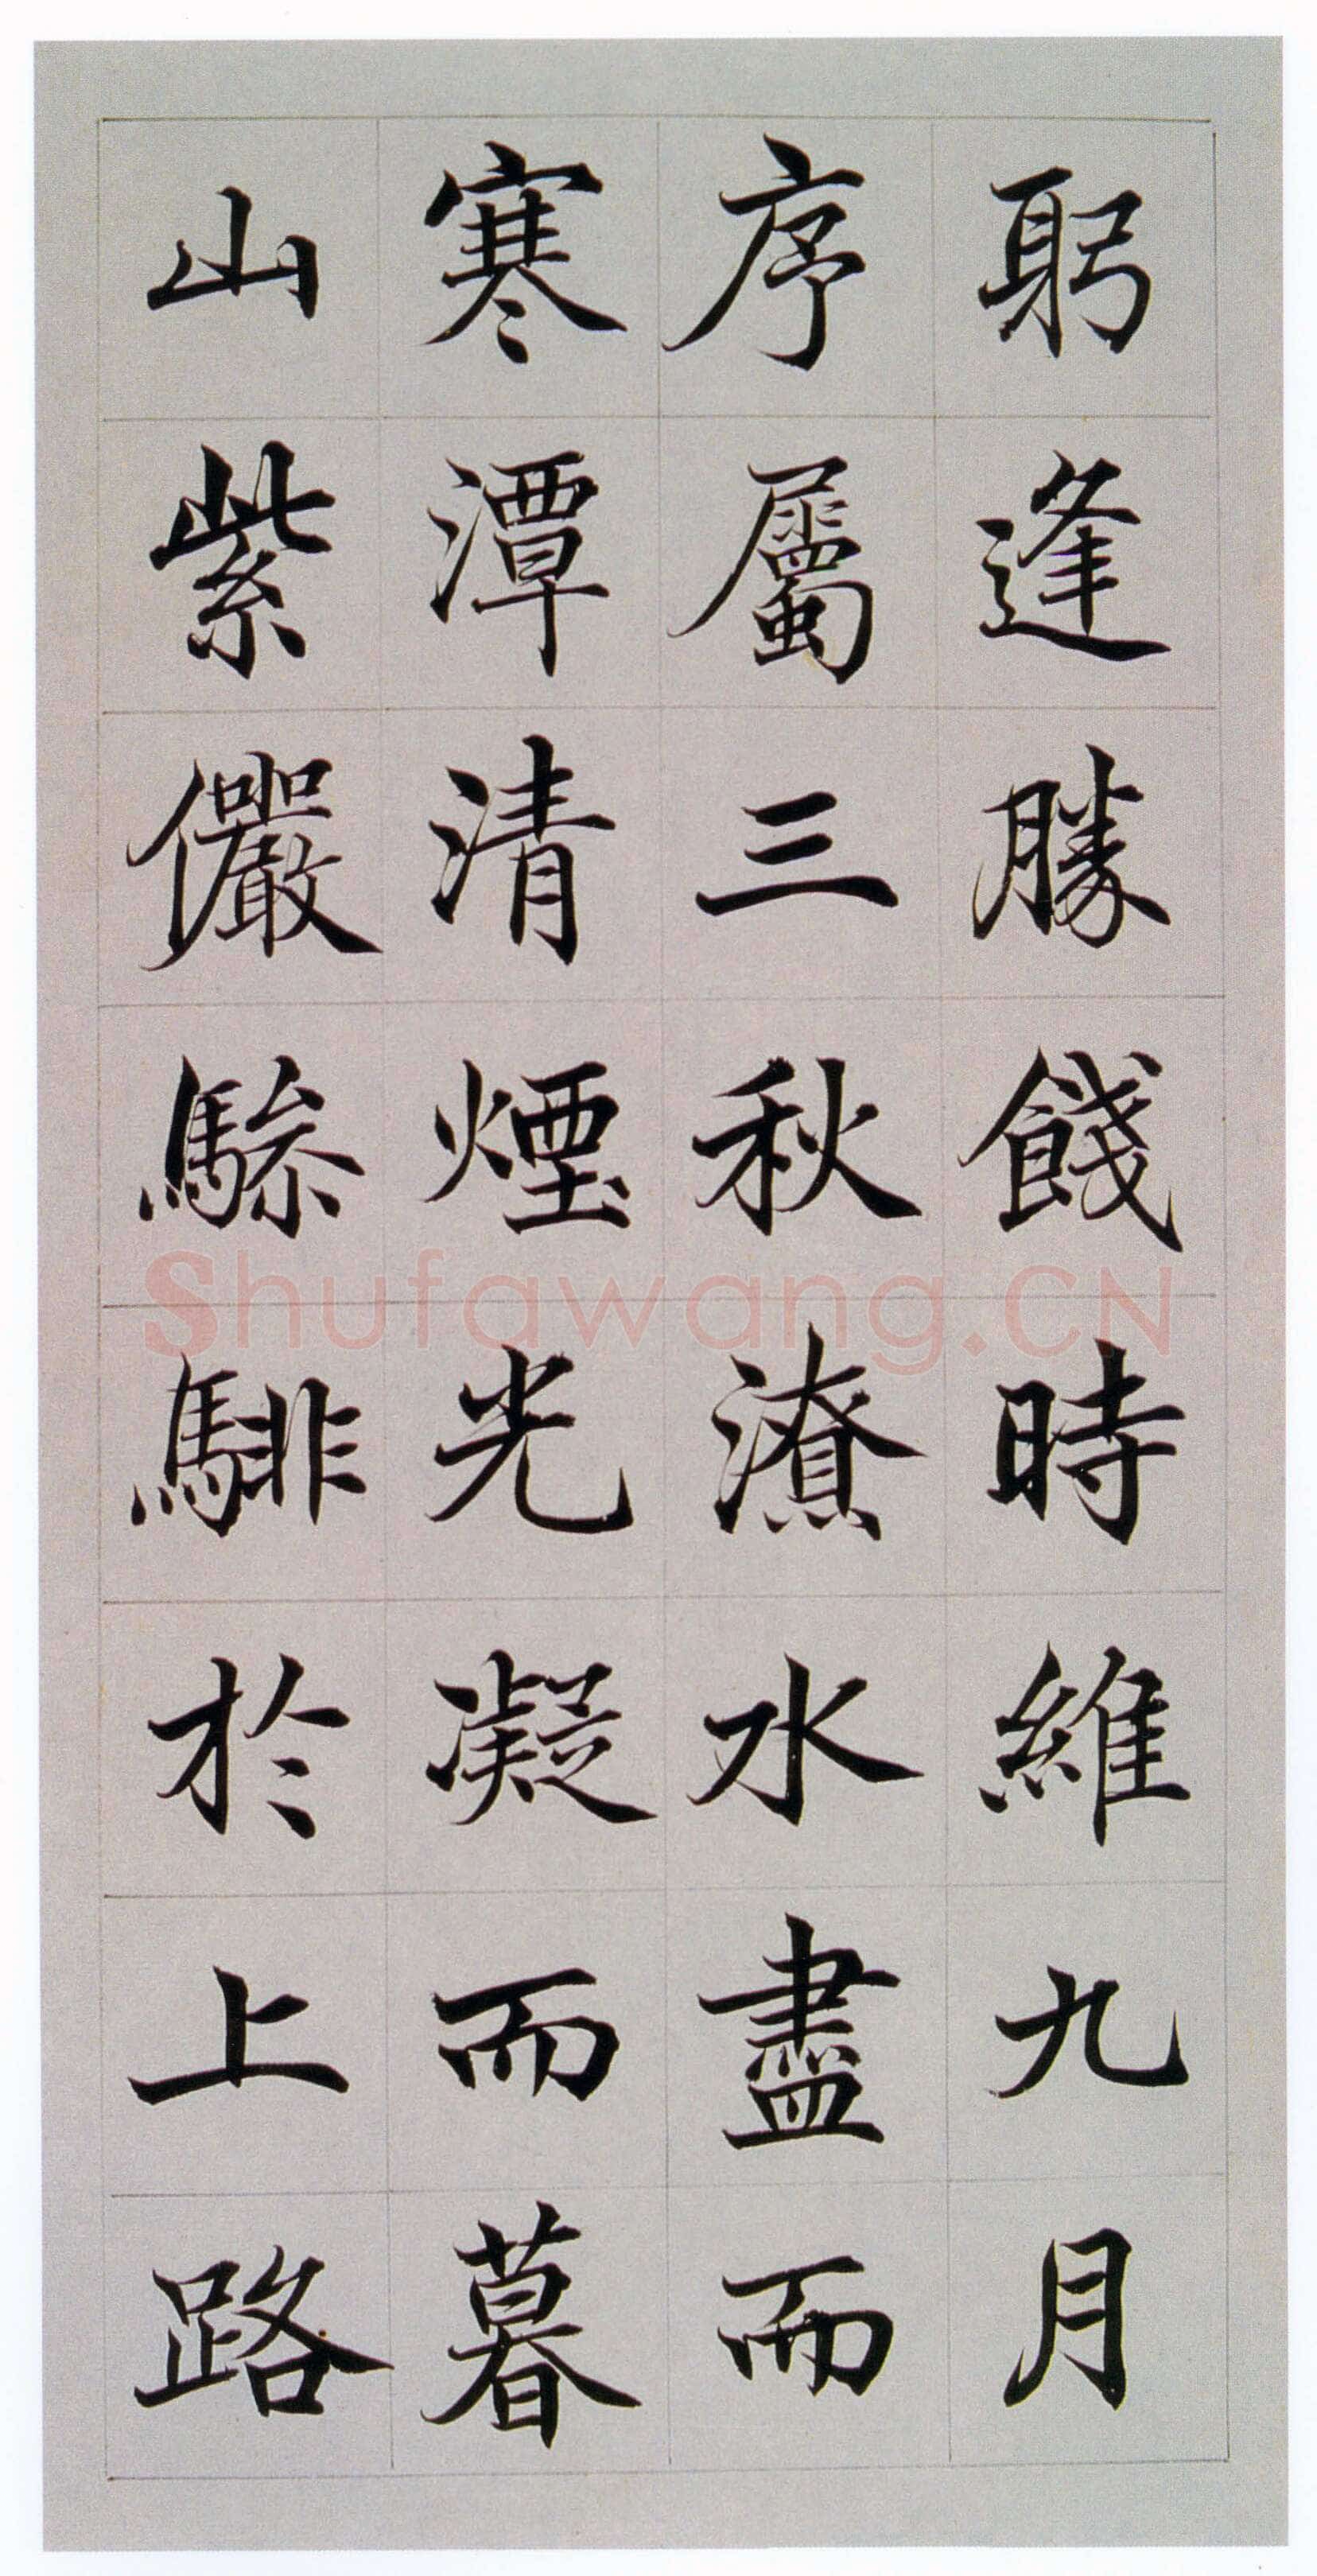 躬逢勝餞時維九月
序屬三秋潦水盡而
寒潭清煙光凝而暮
山紫儼驂騑於上路
Shufawang.CN